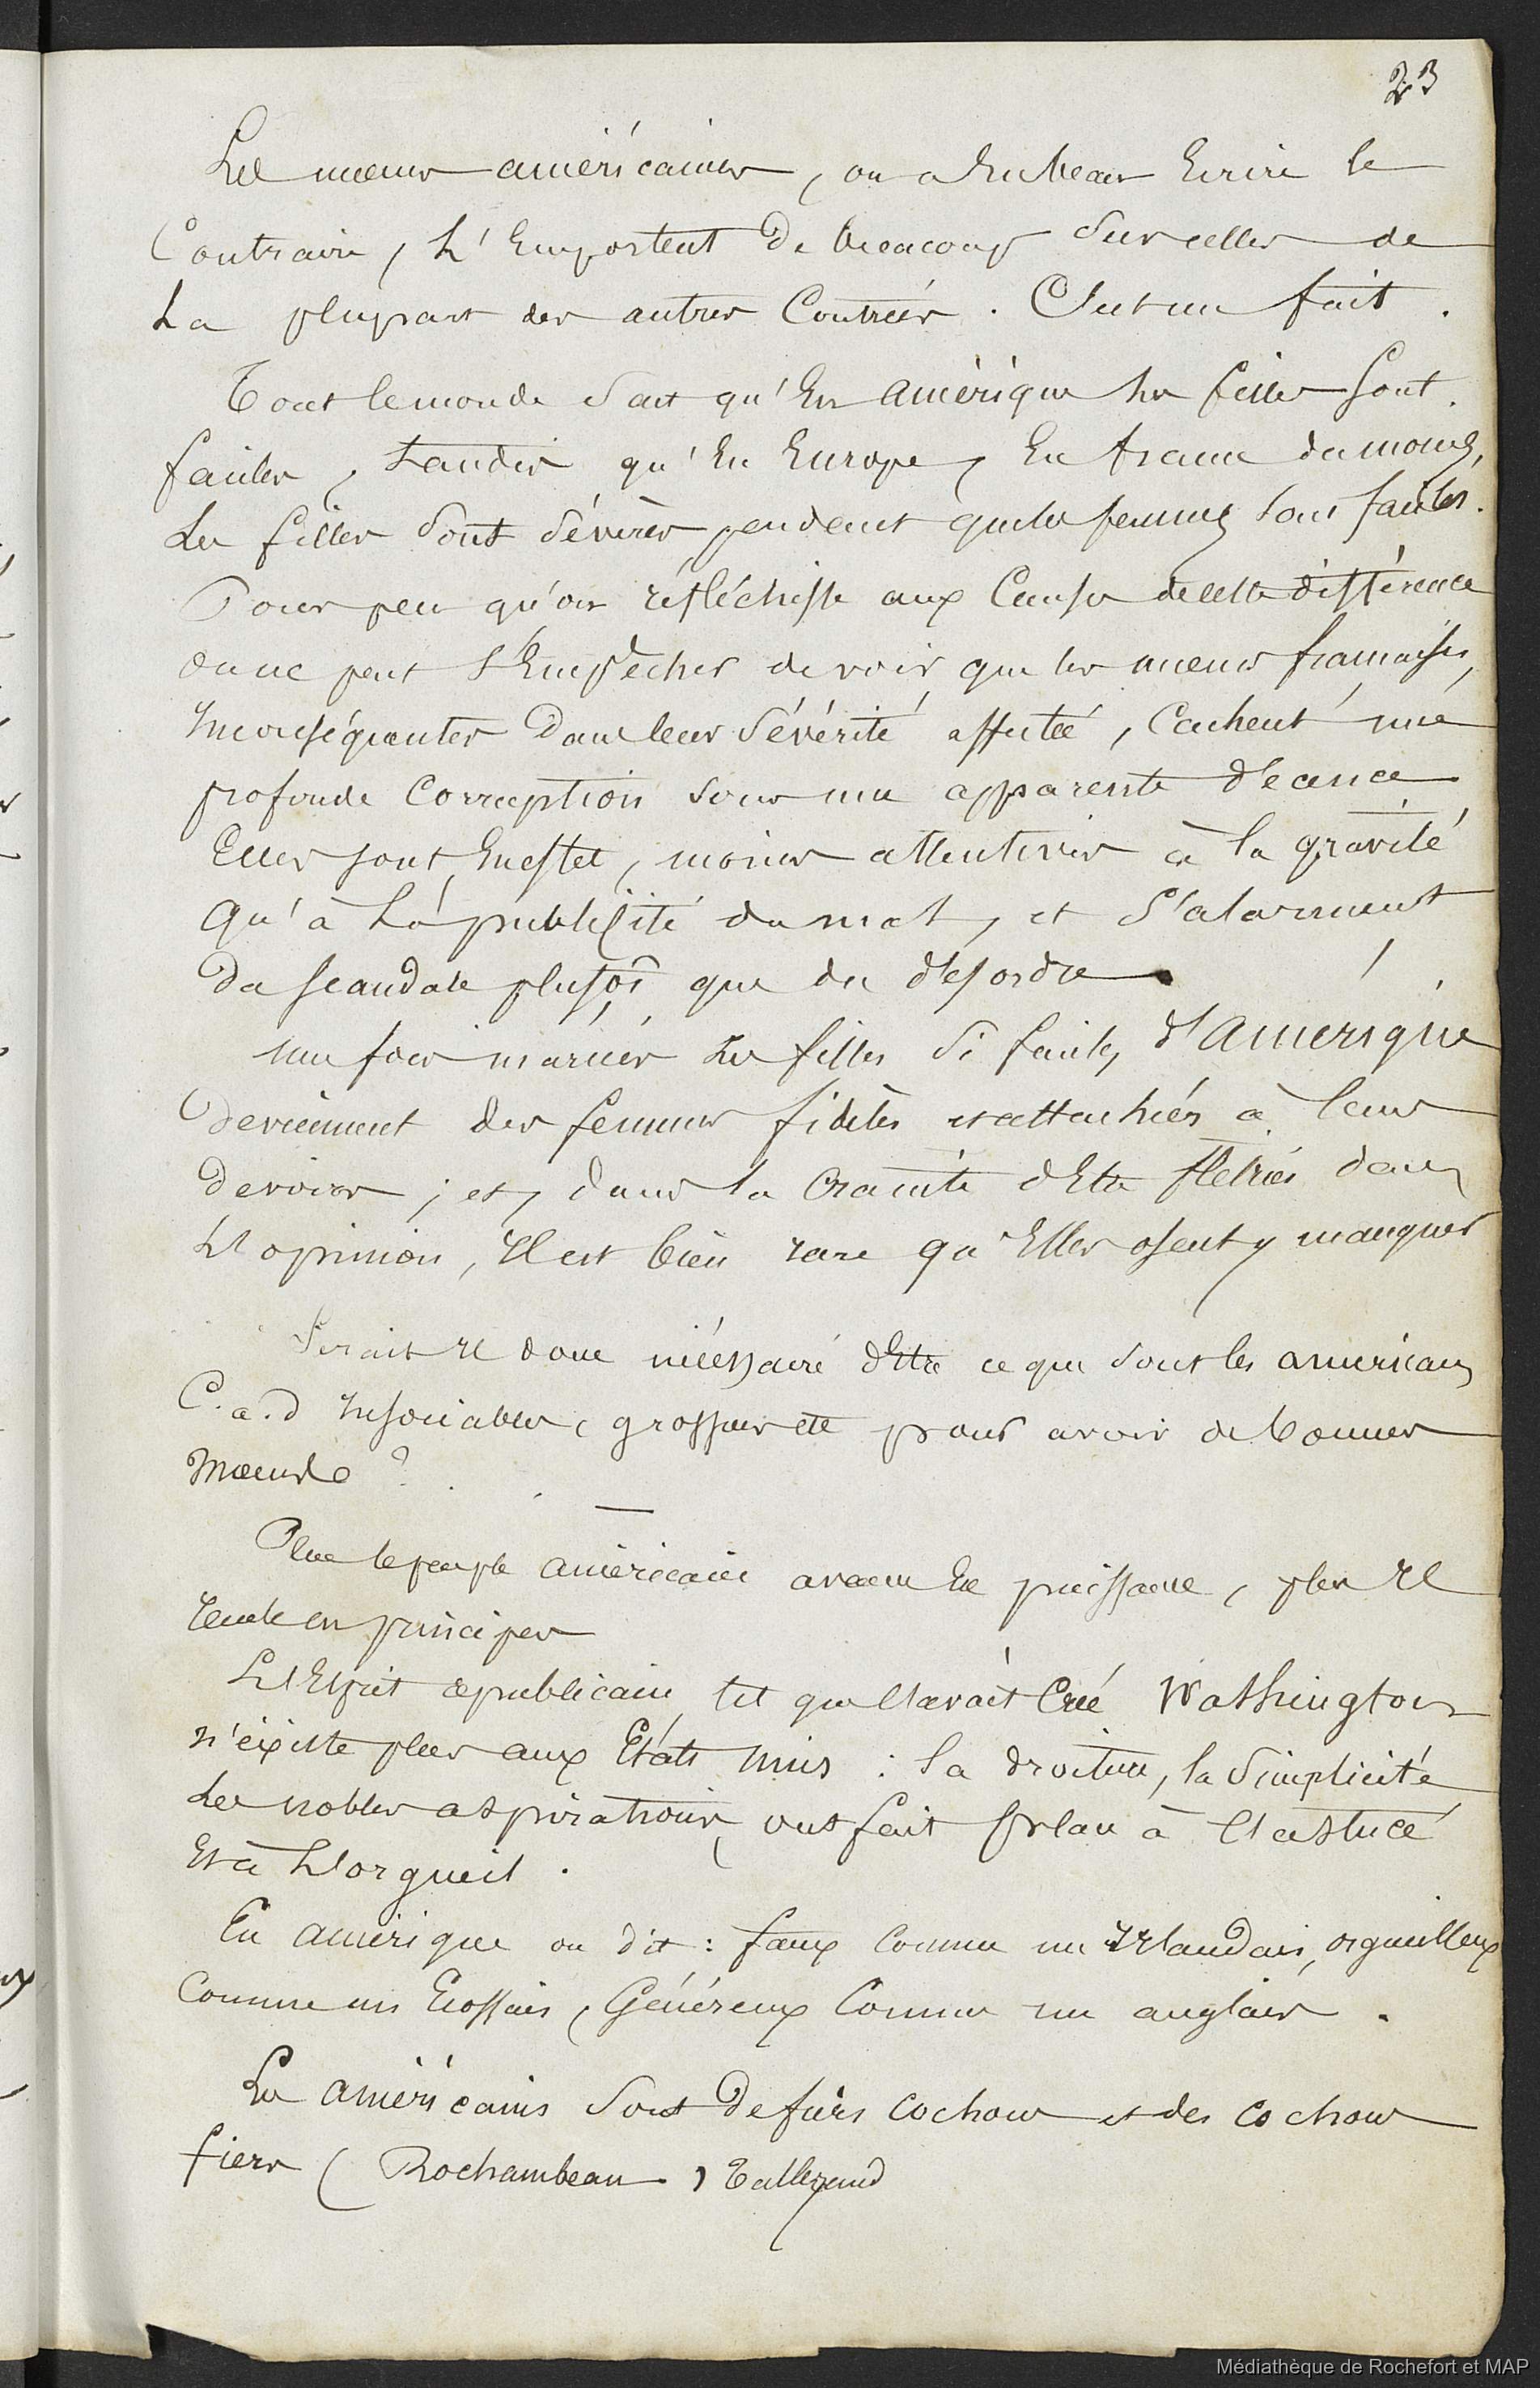 23
Les mœurs américaines, on a eu beau Ecrire le
Contraire, L'Emportent De beaucoup Sur celles de
La plupart des autres Contrées. C'est un fait.
Tout le monde Sait qu'En amérique les filles Sont
faciles, tandis qu'En Europe, En france du moins,
Les filles Sont Sévères pendant que les femmes Sont faciles.
Pour peu qu'on réfléchisse aux Causes de cette différence
on ne peut S'Empêcher de voir que les mœurs françaises,
Inconséquentes Dans leur Sévérité affectée, Cachent une
profonde Corruption sous une apparente décence
Elles sont, En effet, moins attentives à la gravité
qu'à La publicité du mal, et S'alarment
Du scandale plutôt que du désordre.
Une fois mariées Les filles Si faciles d'Amérique
Deviennent des femmes fidèles et attachées à leurs
Devoirs ; et, dans la Crainte d'Etre flétries dans
L'opinion, Il est bien rare qu'Elles osent y manquer
Serait Il donc nécessaire d'Etre ce que sont les américains
C.a.d Insociables, grossiers etc pour avoir de bonnes
Mœurs ?
Plus le peuple américain avance En puissance, plus Il
recule en principes
L'Esprit républicain, tel que l'avait Créé Washington
n'éxiste plus aux Etats Unis : la droiture, la Simplicité
Les nobles aspirations, ont fait place à l'astuce
Et à L'orgueil.
En amérique on dit : faux comme un Irlandais, orgueilleux
Comme un Ecossais, Généreux Comme un anglais.
Les américains Sont De fiers cochons et des cochons
fiers ( Rochambeau ) Talleyrand
Médiathèque de Rochefort et MAP